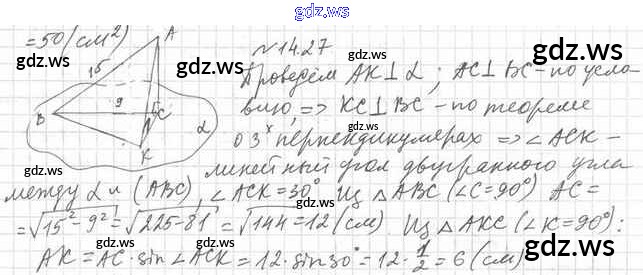 gdz.ws
= 50 (см²)
A
№14.27
15
9
B
C
K
α
Проведём AK⊥α; AC⊥BC - по усло-
вию, => KC⊥BC - по теореме
о 3ˣ перпендикулярах => ∠ACK -
линейный угол двугранного угла
между α и (ABC), ∠ACK=30° Из △ABC (∠C=90°) AC=
= √15²-9² = √225-81 = √144 = 12 (см). Из △AKC (∠K=90°):
AK = AC · sin∠ACK = 12 · sin30° = 12 · 1/2 = 6 (см)
gdz.ws
gdz.ws
gdz.ws
gdz.ws
gdz.ws
gdz.ws
gdz.ws
gdz.ws
gdz.ws